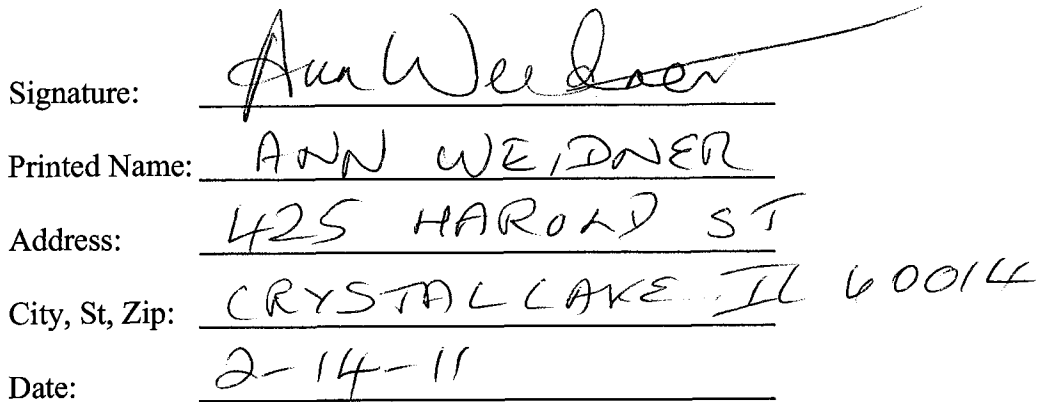 Signature: Ann Weidner
Printed Name: ANN WEIDNER
Address: 425 HAROLD ST
City, St, Zip: CRYSTAL LAKE IL 60014
Date: 2-14-11